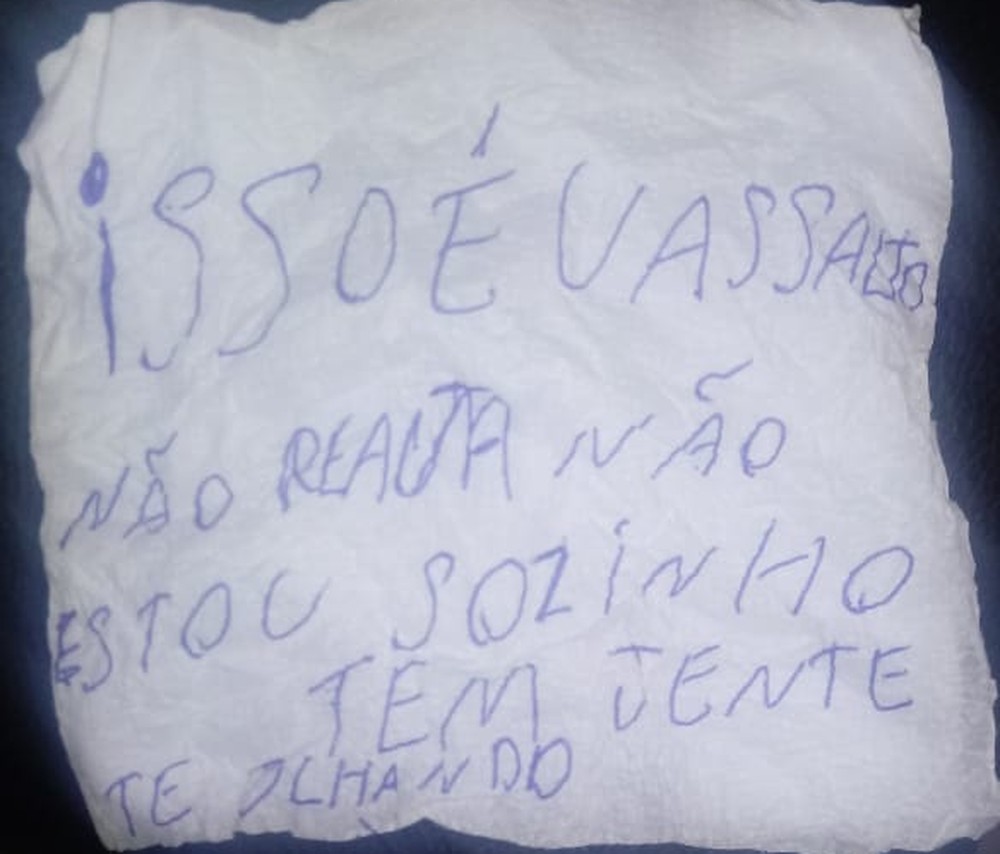 ISSO É UASSALTO
NÃO REAJTA NÃO
ESTOU SOZINHO
TEM JENTE
TE OLHANDO